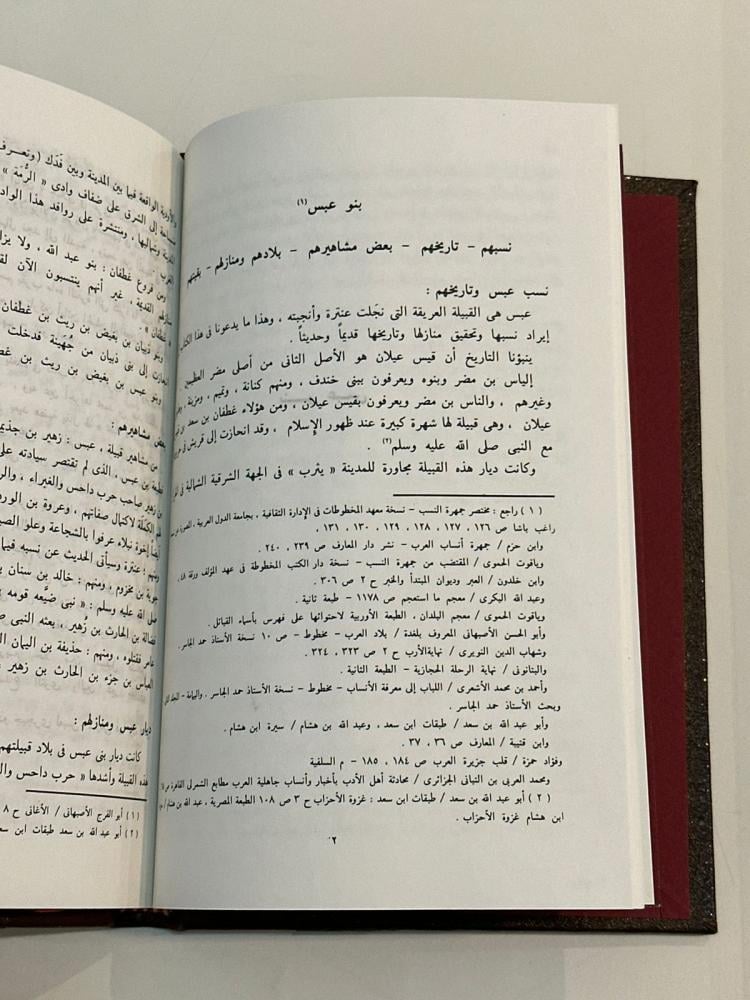 بنو عبس(١)
نسبهم – تاريخهم – بعض مشاهيرهم – بلادهم ومنازلهم – بقيتهم
نسب عبس وتاريخهم :
عبس هى القبيلة العريقة التى نجَلت عنترة وأنجبته ، وهذا ما يدعونا فى هذا الكتاب
إيراد نسبها وتحقيق منازلها وتاريخها قديماً وحديثاً .
ينبؤنا التاريخ أن قيس عيلان هو الأصل الثانى من أصلى مضر العظيمين
إلياس بن مضر وبنوه ويعرفون ببنى خندف ، ومنهم كنانة ، وتميم ، ومزينة ،
وغيرهم ، والناس بن مضر ويعرفون بقيس عيلان ، ومن هؤلاء غطفان بن سعد بن قيس
عيلان ، وهى قبيلة لها شهرة كبيرة عند ظهور الإسلام ، وقد انحازت إلى قريش فى
مع النبى صلى الله عليه وسلم(٢) .
وكانت ديار هذه القبيلة مجاورة للمدينة « يثرب » فى الجهة الشرقية الشمالية فى
( ١ ) راجع : مختصر جمهرة النسب – نسخة معهد المخطوطات فى الإدارة الثقافية ، بجامعة الدول العربية ، المصورة عن
راغب باشا ص ١٢٦ ، ١٢٧ ، ١٢٨ ، ١٢٩ ، ١٣٠ ، ١٣١ .
وابن حزم / جمهرة أنساب العرب – نشر دار المعارف ص ٢٣٩ ، ٢٤٠ .
وياقوت الحموى / المقتضب من جمهرة النسب – نسخة دار الكتب المخطوطة فى عهد المؤلف ورقة ٤٨ .
وابن خلدون / العبر وديوان المبتدأ والخبر ح ٢ ص ٣٠٦ .
وعبد الله البكرى / معجم ما استعجم ص ١١٧٨ – طبعة ثانية .
وياقوت الحموى / معجم البلدان . الطبعة الأوربية لاحتوائها على فهرس بأسماء القبائل .
وأبو الحسن الأصبهانى المعروف بلغدة / بلاد العرب – مخطوط – ص ١٠ نسخة الأستاذ حمد الجاسر .
وشهاب الدين النويرى / نهاية الأرب ح ٢ ص ٣٢٣ ، ٣٢٤ .
والبتانونى / نهاية الرحلة الحجازية – الطبعة الثانية .
وأحمد بن محمد الأشعرى / اللباب إلى معرفة الأنساب – مخطوط – نسخة الأستاذ حمد الجاسر . واليمامة –
وبحث الأستاذ حمد الجاسر .
وأبو عبد الله بن سعد / طبقات ابن سعد ، وعبد الله بن هشام / سيرة ابن هشام .
وابن قتيبة / المعارف ص ٣٦ ، ٣٧ .
وفؤاد حمزة / قلب جزيرة العرب ص ١٨٤ ، ١٨٥ – م السلفية
ومحمد العربى بن التبانى الجزائرى / محادثة أهل الأدب بأخبار وأنساب جاهلية العرب مطابع الشعراوى القاهرة
( ٢ ) أبو عبد الله بن سعد / طبقات ابن سعد : غزوة الأحزاب ح ٣ ص ١٠٨ الطبعة المصرية ، عبد الله بن هشام /
ابن هشام غزوة الأحزاب .
٢
والأودية الواقعة فيما بين المدينة وبين فَدَك
إلى الشرق على ضفاف وادى « الرُّمَة »
المدينة وشمالها ، ومنتشرة على روافد هذا
العرب .
ومن فروع غطفان : بنو عبد الله ، ولا
منازلهم القديمة ، غير أنهم ينتسبون الآن
« غطفان » .
وبنو ذبيان بن بغيض بن ريث بن غطفان
انحازت إلى بنى ذبيان من جُهَينة فدخلت
وبنو عبس بن بغيض بن ريث بن
بعض مشاهيرهم :
من مشاهير قبيلة ، عبس : زهير بن
قطيعة بن عبس ، الذى لم تقتصر سيادته
بن زهير صاحب حرب داحس والغبراء ،
لهم الكَمَلة لاكتمال صفاتهم ، وعروة بن
أيضاً إخوة نبلاء عرفوا بالشجاعة وعلو
ومنهم ؛ عنترة وسيأتى الحديث عن نسبه فيما
بن مخزوم ، ومنهم : خالد بن سنان
صلى الله عليه وسلم : « نبى ضيَّعه قومه
فضالة بن الحارث بن زُهير ، بعثه النبى
عامر فقتلوه ، ومنهم : حذيفة بن اليمان
العباس بن جزء بن الحارث بن زهير
ديار عبس ومنازلهم :
كانت ديار بنى عبس فى بلاد قبيلتهم
هذه القبيلة وأشدها « حرب داحس
( ١ ) أبو الفرج الأصبهانى / الأغانى ح ٨
( ٢ ) أبو عبد الله بن سعد طبقات ابن